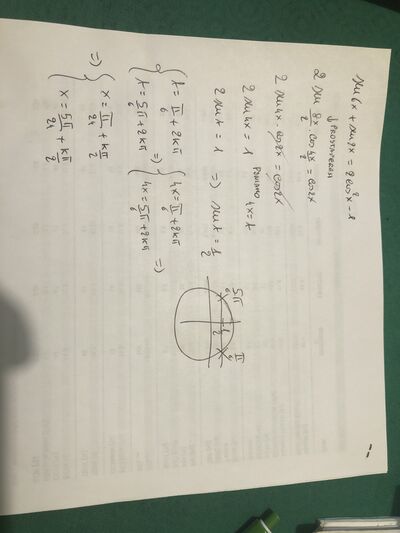 sin 6x + sin 2x = 2cos²x - 1
↓ PROSTAFERESI
2 sin 8x/2 · cos 4x/2 = cos 2x
2 sin 4x · cos2x = cos2x
2 sin 4x = 1 PONIAMO 4x = t
2 sin t = 1 => sin t = 1/2
5π/6 1/2 π/6
{ t = π/6 + 2kπ => { 4x = π/6 + 2kπ =>
t = 5π/6 + 2kπ 4x = 5π/6 + 2kπ
=> { x = π/24 + kπ/2
x = 5π/24 + kπ/2